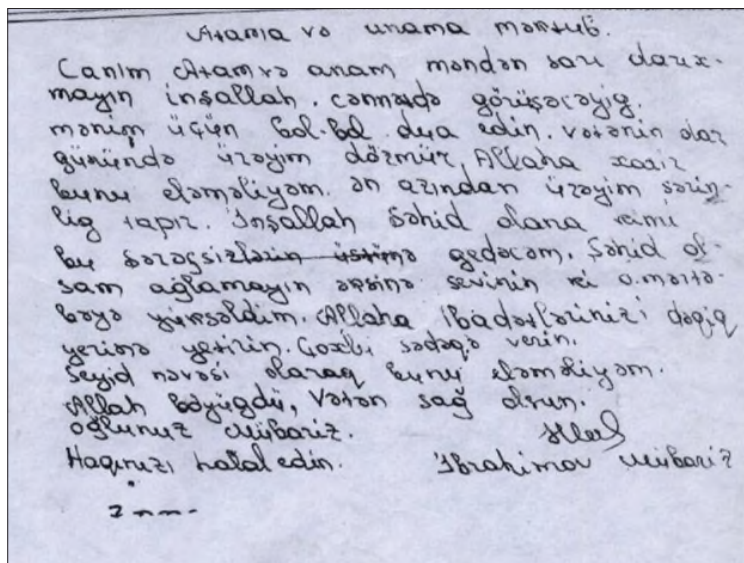 Atama və anama məktub.
Canım Atam və anam məndən sarı darıx-
mayın inşallah. cənnətdə görüşəcəyig.
mənim üçün bol-bol dua edin. vətənin dar
günündə ürəyim dözmür, Allaha xatir
bunu eləməliyəm. ən azından ürəyim sərin-
lig tapır. İnşallah Şəhid olana kimi
bu şərəfsizlərin üstünə gedəcəm. Şəhid ol-
sam ağlamayın əksinə sevinin ki o.mərtə-
bəyə yüksəldim. Allaha ibadətlərinizi dəqiq
yerinə yetirin. Çoxlu sədəqə verin.
Seyid nəvəsi olaraq bunu eləməliyəm.
Allah böyügdü, Vətən sağ olsun.
oğlunuz Mübariz.
Haqqınızı halal edin. İbrahimov Mübariz